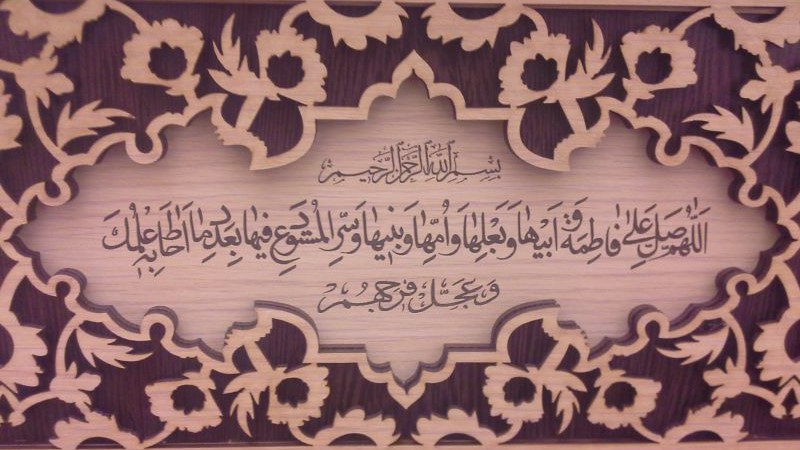 بسم الله الرحمن الرحیم
اللهم صل علی فاطمة و ابیها و بعلها و امها و بنیها و سر المستودع فیها بعدد ما احاط به علمک
و عجل فرجهم